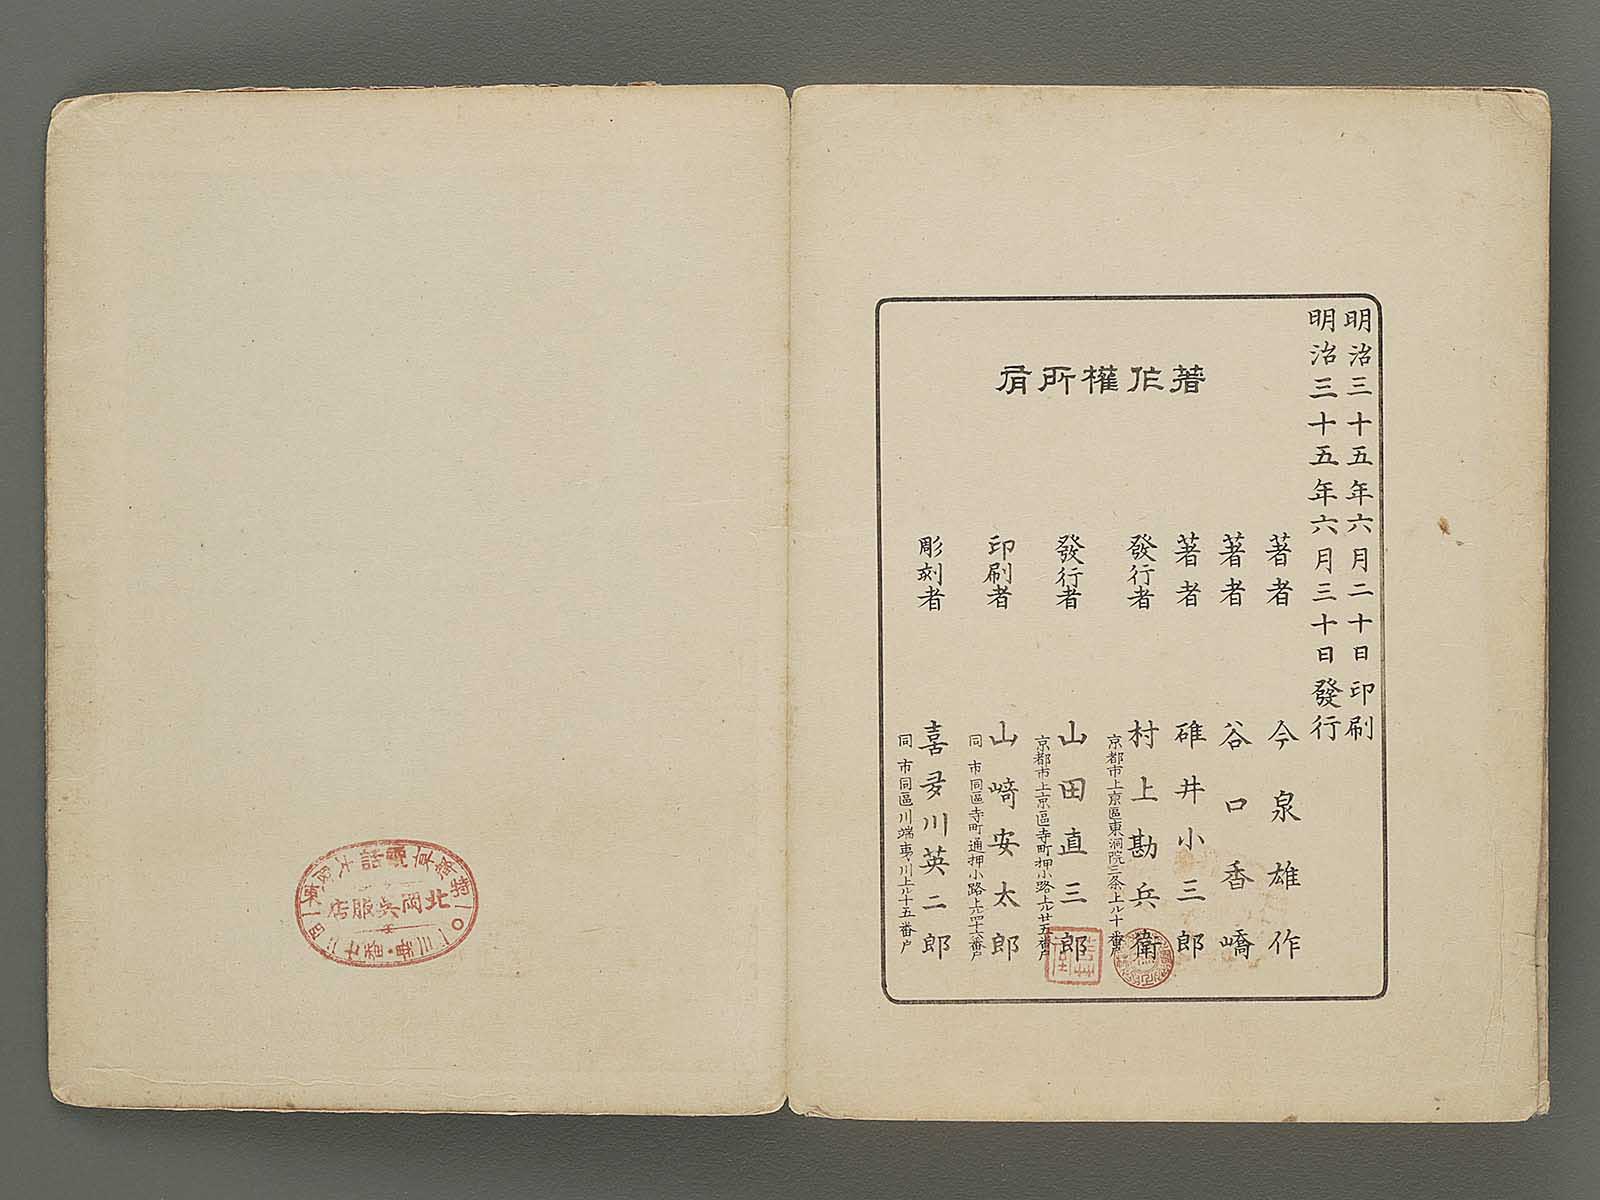 明治三十五年六月二十日印刷
明治三十五年六月三十日發行
著作權所有
著者 今泉雄作
著者 谷口香嶠
著者 碓井小三郎
發行者 村上勘兵衛
京都市上京區東洞院三条上ル十番戸
發行者 山田直三郎
京都市上京區寺町押小路上ル廿五番戸
印刷者 山﨑安太郎
同市同區寺町通押小路上ル四十六番戸
彫刻者 喜多川英二郎
同市同區川端夷川上ル十五番戸
北岡呉服店